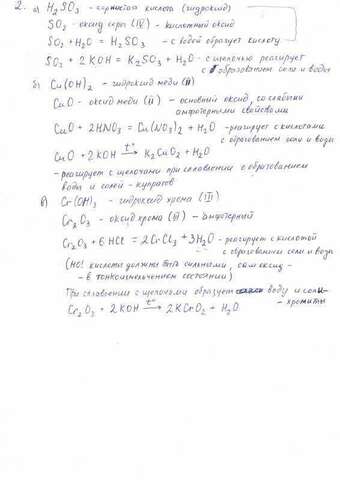 2. а) H₂SO₃ - сернистая кислота (гидроксид)
SO₂ - оксид серы (IV) - кислотный оксид
SO₂ + H₂O = H₂SO₃ - с водой образует кислоту
SO₂ + 2KOH = K₂SO₃ + H₂O - с щелочью реагирует
с образованием соли и воды
б) Cu(OH)₂ - гидроксид меди (II)
CuO - оксид меди (II) - основный оксид, со слабыми
амфотерными свойствами
CuO + 2HNO₃ = Cu(NO₃)₂ + H₂O - реагирует с кислотами
с образованием соли и воды
CuO + 2KOH t°→ K₂CuO₂ + H₂O
- реагирует с щелочами при сплавлении с образованием
воды и солей - купратов
в) Cr(OH)₃ - гидроксид хрома (III)
Cr₂O₃ - оксид хрома (III) - амфотерный
Cr₂O₃ + 6HCl = 2CrCl₃ + 3H₂O - реагирует с кислотой
с образованием соли и воды
(но! кислоты должны быть сильными, сам оксид -
- в тонкоизмельченном состоянии)
При сплавлении с щелочами образует воду и соли-
- хромиты
Cr₂O₃ + 2KOH t°→ 2KCrO₂ + H₂O